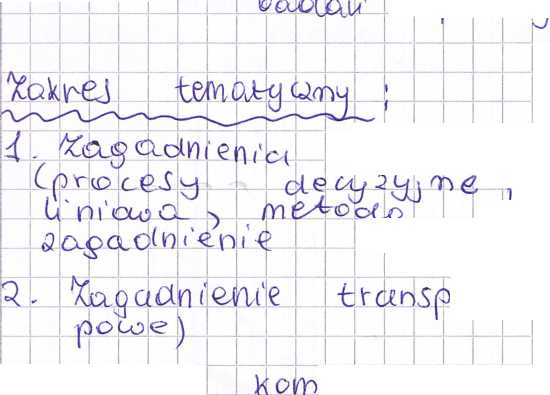 badań
Zakres tematyczny:
1. Zagadnienia
(procesy decyzyjne,
liniowa, metoda
zagadnienie
2. Zagadnienie transp
powe)
kom